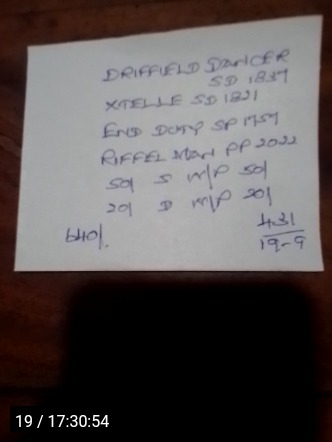 DRIFFIELD DANCER
SD 1837
XTELLE SD 1821
END DUTY SP 1757
RIFFEL MAN PP 2022
50/ S M/P 50/
20/ D M/P 20/
640/.
4.31
19-9
19 / 17:30:54